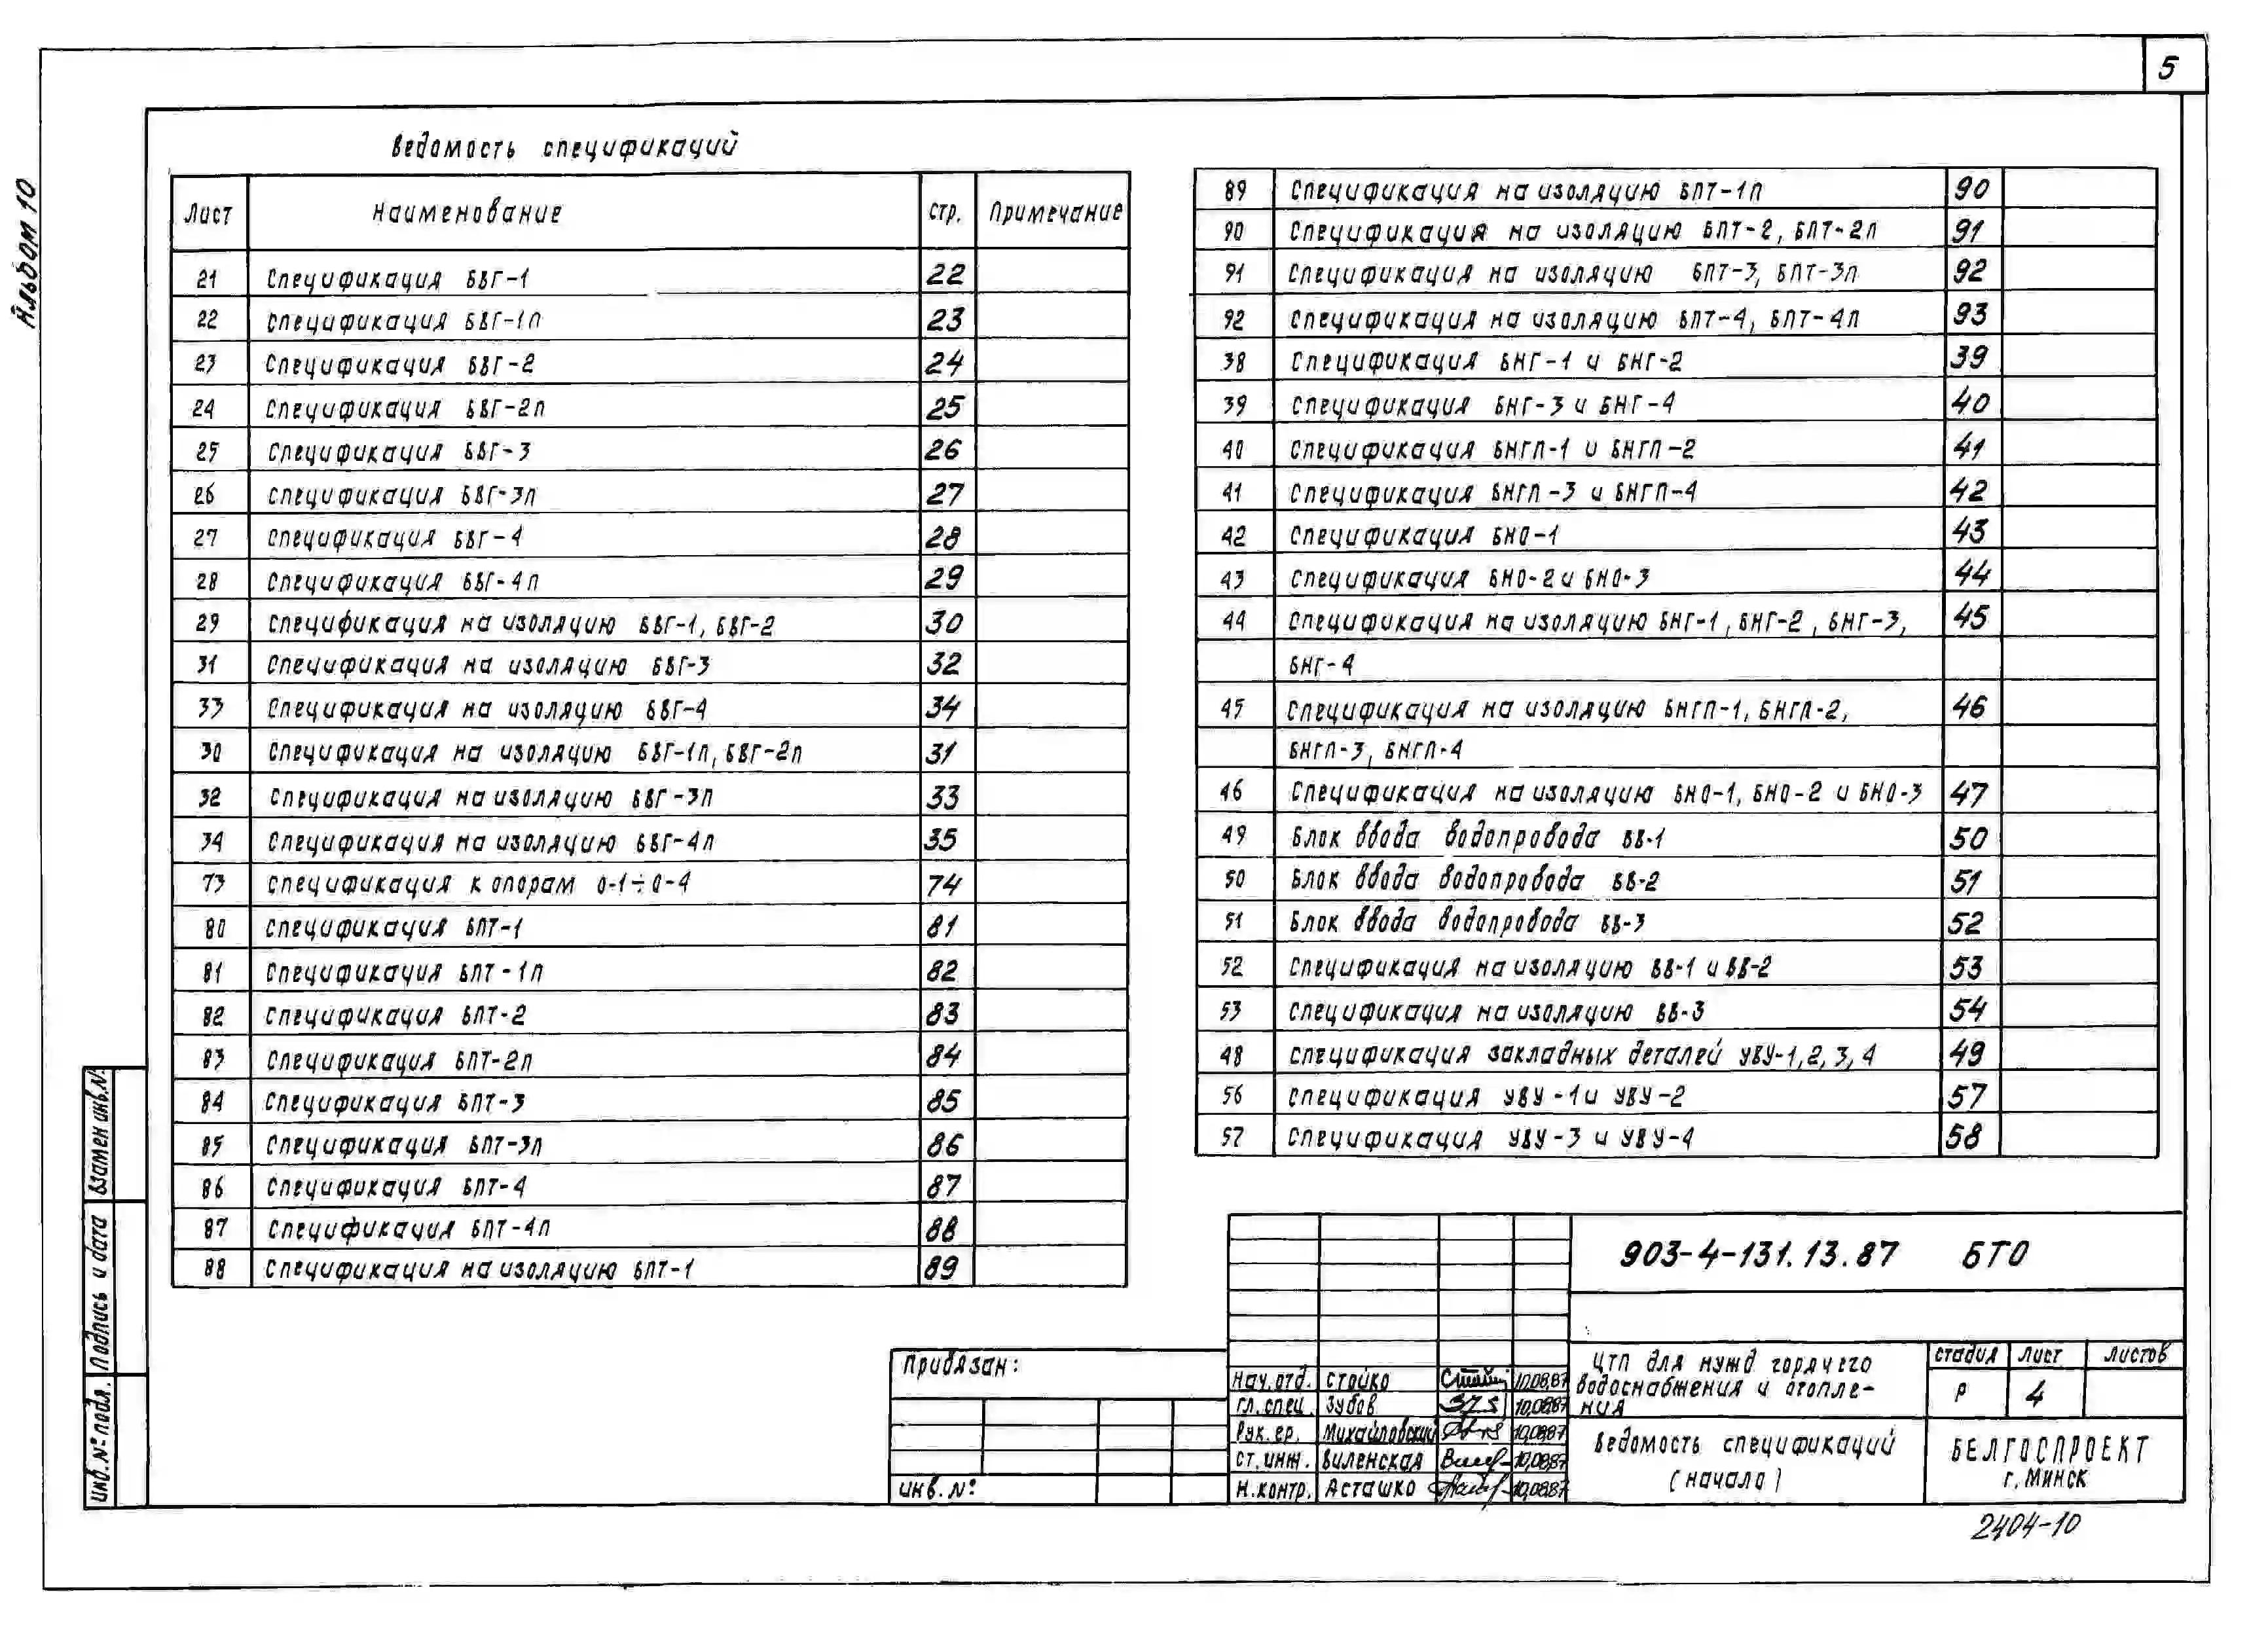 5
Альбом 10
Ведомость спецификаций
Лист Наименование стр. Примечание
21 Спецификация БВГ-1 22
22 Спецификация БВГ-1п 23
23 Спецификация БВГ-2 24
24 Спецификация БВГ-2п 25
25 Спецификация БВГ-3 26
26 Спецификация БВГ-3п 27
27 Спецификация БВГ-4 28
28 Спецификация БВГ-4п 29
29 Спецификация на изоляцию БВГ-1, БВГ-2 30
31 Спецификация на изоляцию БВГ-3 32
33 Спецификация на изоляцию БВГ-4 34
30 Спецификация на изоляцию БВГ-1п, БВГ-2п 31
32 Спецификация на изоляцию БВГ-3п 33
34 Спецификация на изоляцию БВГ-4п 35
73 Спецификация к опорам О-1÷О-4 74
80 Спецификация БПТ-1 81
81 Спецификация БПТ-1п 82
82 Спецификация БПТ-2 83
83 Спецификация БПТ-2п 84
84 Спецификация БПТ-3 85
85 Спецификация БПТ-3п 86
86 Спецификация БПТ-4 87
87 Спецификация БПТ-4п 88
88 Спецификация на изоляцию БПТ-1 89
89 Спецификация на изоляцию БПТ-1п 90
90 Спецификация на изоляцию БПТ-2, БПТ-2п 91
91 Спецификация на изоляцию БПТ-3, БПТ-3п 92
92 Спецификация на изоляцию БПТ-4, БПТ-4п 93
38 Спецификация БНГ-1 и БНГ-2 39
39 Спецификация БНГ-3 и БНГ-4 40
40 Спецификация БНГП-1 и БНГП-2 41
41 Спецификация БНГП-3 и БНГП-4 42
42 Спецификация БНО-1 43
43 Спецификация БНО-2 и БНО-3 44
44 Спецификация на изоляцию БНГ-1, БНГ-2, БНГ-3, 45
БНГ-4
45 Спецификация на изоляцию БНГП-1, БНГП-2, 46
БНГП-3, БНГП-4
46 Спецификация на изоляцию БНО-1, БНО-2 и БНО-3 47
49 Блок ввода водопровода БВ-1 50
50 Блок ввода водопровода БВ-2 51
51 Блок ввода водопровода БВ-3 52
52 Спецификация на изоляцию БВ-1 и БВ-2 53
53 Спецификация на изоляцию БВ-3 54
48 Спецификация закладных деталей УВУ-1,2,3,4 49
56 Спецификация УВУ-1 и УВУ-2 57
57 Спецификация УВУ-3 и УВУ-4 58
Взамен инв.№
Подпись и дата
Инв.№ подл.
Привязан:
Инв.№
903-4-131.13.87 БТО
Нач.отд. Стойко 10.08.87
Гл.спец. Зубов 10.08.87
Рук.гр. Михайловский 10.08.87
Ст.инж. Виленская 10.08.87
Н.контр. Асташко 10.08.87
ЦТП для нужд горячего
водоснабжения и отопле-
ния
стадия лист листов
Р 4
Ведомость спецификаций
(начало)
БЕЛГОСПРОЕКТ
г. Минск
2404-10